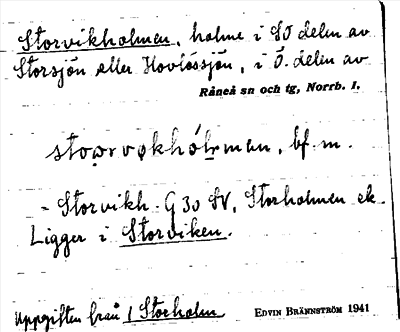 Storvikholmen, holme i SO delen av
Storsjön eller Hovlössjön, i Ö. delen av
Råneå sn och tg, Norrb. l.
bf. m.
- Storvikh. G 30 SV, Storholmen ek.
Ligger i Storviken.
Uppgiften från 1 Storholm
EDVIN BRÄNNSTRÖM 1941